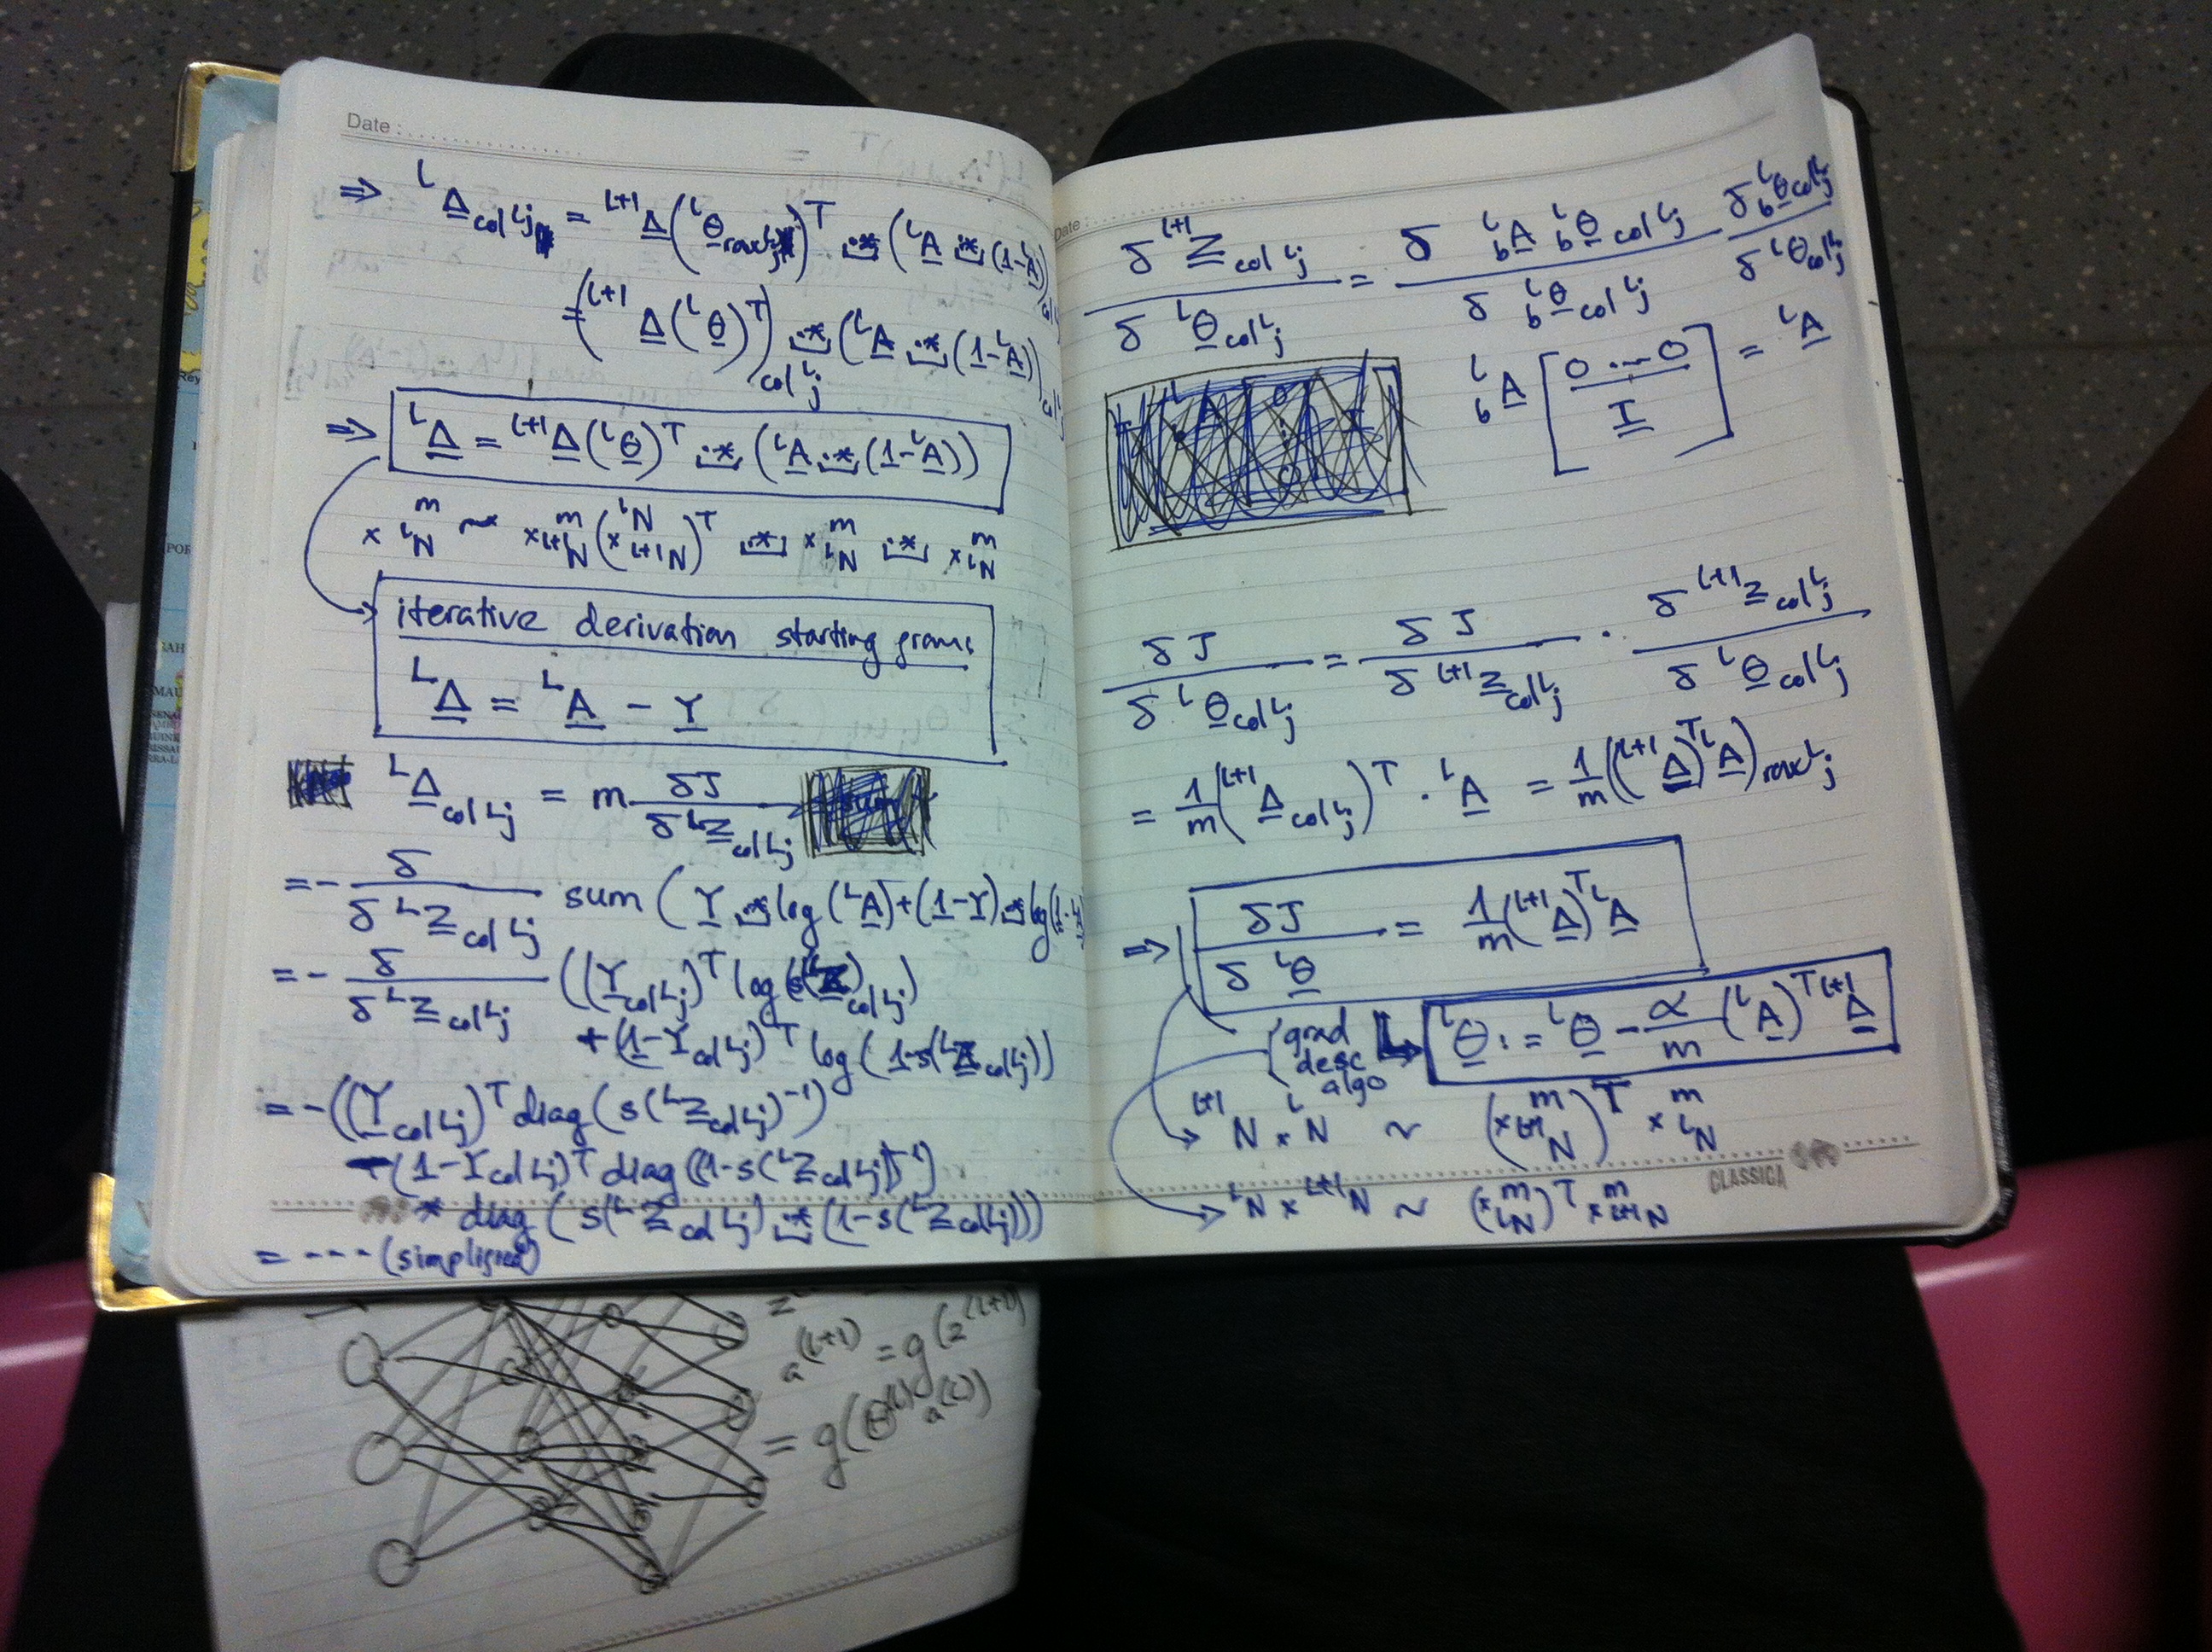 Date :
⇒ ᴸΔ̲ col ᴸj = ᴸ⁺¹Δ̲(ᴸθ̲ row ᴸj)ᵀ .* (ᴸA̲ .* (1-ᴸA̲)) col
= (ᴸ⁺¹Δ̲(ᴸθ̲)ᵀ) col ᴸj .* (ᴸA̲ .* (1̲-ᴸA̲)) col
⇒ ᴸΔ̲ = ᴸ⁺¹Δ̲(ᴸθ̲)ᵀ .* (ᴸA̲ .* (1̲-ᴸA̲))
m × ᴸN ~ m × ᴸ⁺¹N (ᴸN × ᴸ⁺¹N)ᵀ .* m × ᴸN .* m × ᴸN
iterative derivation starting from:
ᴸΔ̲ = ᴸA̲ - Y̲
ᴸΔ̲ col ᴸj = m δJ / δ ᴸZ̲ col ᴸj
= - δ / δ ᴸZ̲ col ᴸj sum (Y̲ .* log (ᴸA̲) + (1̲-Y̲) .* log(1̲-ᴸA̲
= - δ / δ ᴸZ̲ col ᴸj ((Y̲ col ᴸj)ᵀ log (s(ᴸZ̲) col ᴸj)
+ (1̲-Y̲ col ᴸj)ᵀ log (1-s(ᴸZ̲ col ᴸj))
= - ((Y̲ col ᴸj)ᵀ diag (s(ᴸZ̲ col ᴸj)⁻¹)
- (1-Y col ᴸj)ᵀ diag ((1-s(ᴸZ̲ col ᴸj))⁻¹)
* diag (s(ᴸZ̲ col ᴸj) .* (1-s(ᴸZ̲ col ᴸj)))
= --- (simplified)
Date :
δ ᴸ⁺¹Z̲ col ᴸj / δ ᴸθ̲ col ᴸj = δ ᴸ_b A̲ ᴸ_b θ̲ col ᴸj / δ ᴸ_b θ̲ col ᴸj δ ᴸ_b θ̲ col ᴸj / δ ᴸθ col ᴸj
ᴸ_b A̲ [0 ... 0 / I̲] = ᴸA̲
δJ / δ ᴸθ̲ col ᴸj = δJ / δ ᴸ⁺¹Z̲ col ᴸj · δ ᴸ⁺¹Z̲ col ᴸj / δ ᴸθ̲ col ᴸj
= 1/m (ᴸ⁺¹Δ̲ col ᴸj)ᵀ · ᴸA̲ = 1/m ((ᴸ⁺¹Δ̲)ᵀ ᴸA̲) row ᴸj
⇒ δJ / δ ᴸθ̲ = 1/m (ᴸ⁺¹Δ̲)ᵀ ᴸA̲
grad desc algo ᴸθ̲ := ᴸθ̲ - α/m (ᴸA̲)ᵀ ᴸ⁺¹Δ̲
ᴸ⁺¹N × ᴸN ~ (m × ᴸ⁺¹N)ᵀ m × ᴸN
CLASSICA
ᴸN × ᴸ⁺¹N ~ (m × ᴸN)ᵀ m × ᴸ⁺¹N
a^(L+1) = g(z^(L+1))
= g(Θ^(L) a^(L))